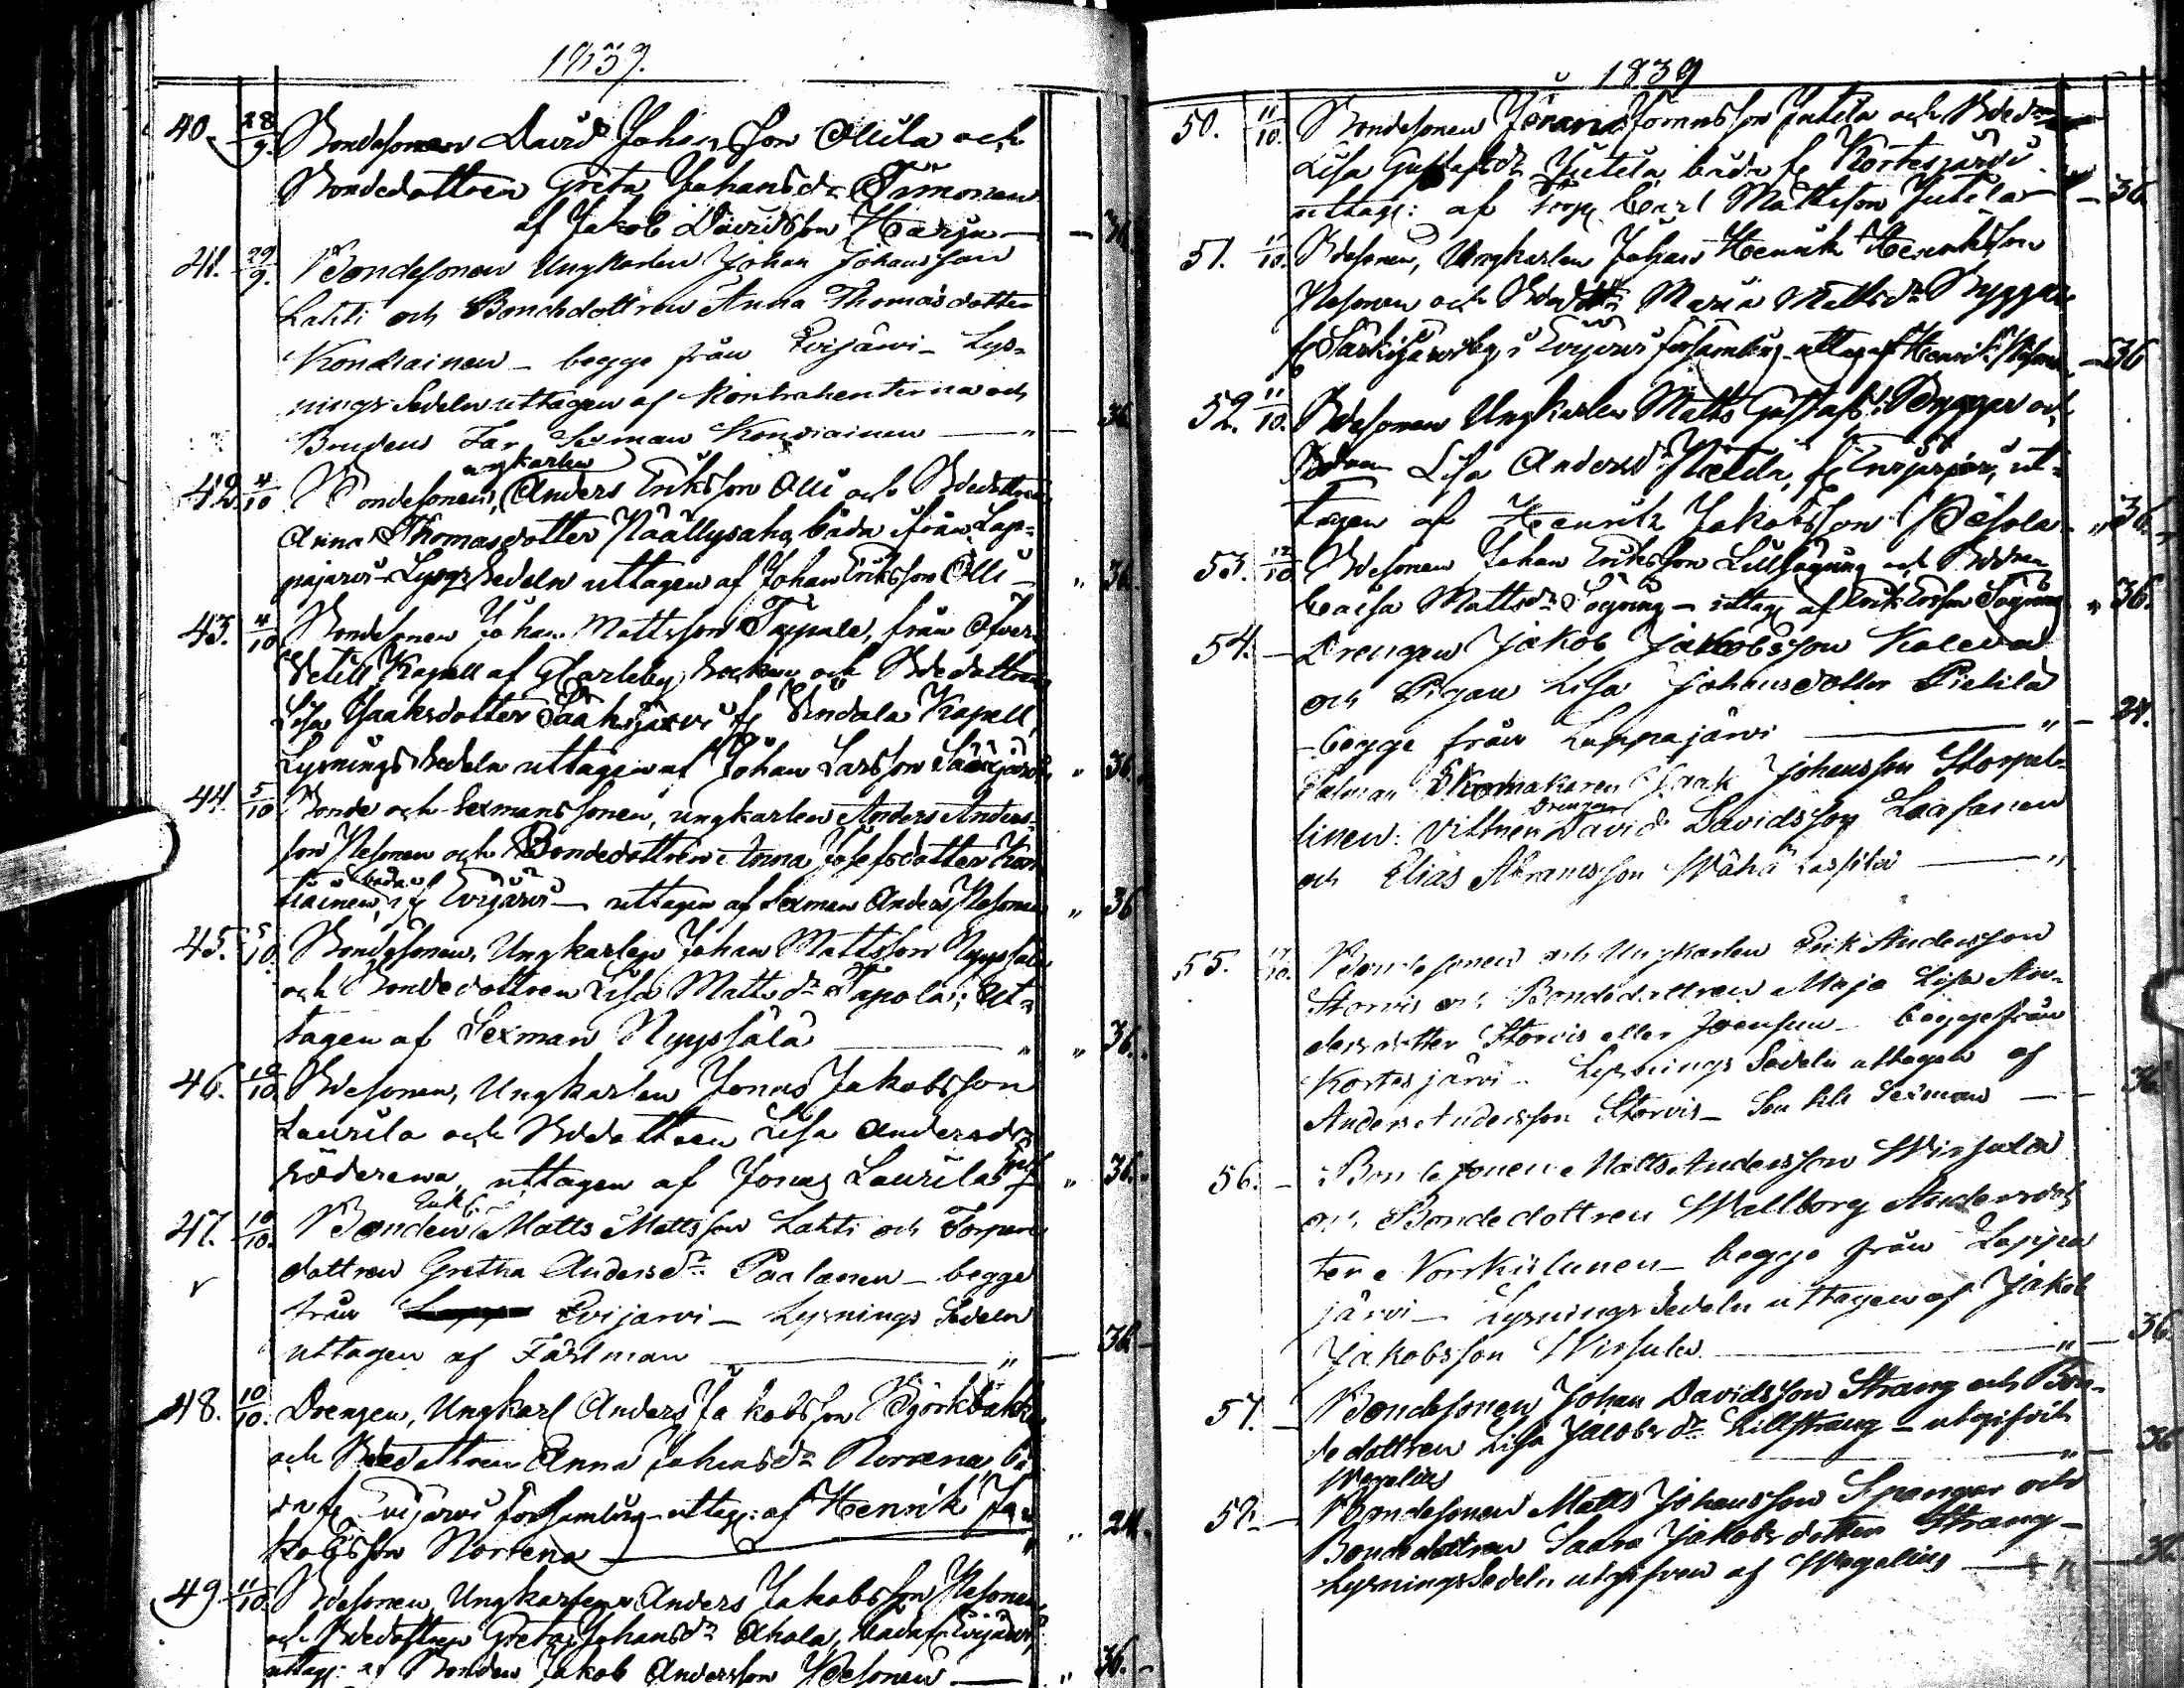 1839.
40. 28/9. Bondesonen David Johansson Ollila och
Bondedottren Greta Johansdr Timonen
af Jakob Davidsson Harju — 36.
41. 29/9. Bondesonen Ungkarlen Johan Johansson
Lahti och Bondedottren Anna Thomasdotter
Kondiainen – begge från Evijärvi – Lys-
nings Sedeln uttagen af Kontrahenterna och
Brudens Far Sexman Kondiainen — " — 36
42. 4/10 Bondesonen, ungkarlen Anders Eriksson Olli och Bdedottren
Anna Thomasdotter båda ifrån Lap-
pajärvi – Lysgs Sedeln uttagen af Johan Eriksson Olli – " 36.
43. 4/10 Bondesonen Johan Mattsson Taipale, från Öfver
Vetill Kapell af GCarleby Socken och Bdedottren
Lisa Isaksdotter Sääksjärvi fr Vindala Kapell,
Lysnings Sedeln uttagen af Johan Larsson Sääxjärvi " 36.
44. 5/10 Bonde och Sexmans sonen, ungkarlen Anders Anders-
son Nesonen och Bondedottren Anna Josefsdotter Kon
tiainen, båda fr Evijärvi – uttagen af Sexman Anders Nesonen " 36
45. 5/10. Bondesonen, Ungkarlen Johan Mattsson Nyyssälä
och Bondedottren Lisa Mattsdr Tapola; Ut-
tagen af Sexman Nyyssälä — " " 36.
46. 10/10 Bdesonen, Ungkarlen Jonas Jakobsson
Laurila och Bdedottren Lisa Andersdr
Söderena, uttagen af Jonas Laurila sjelf " 36.
47. 10/10. Bonden Enkl. Matts Mattsson Lahti och Torpare
dottren Gretha Andersdr Paalanen – begge
från Evijärvi – Lysnings Sedeln
uttagen af Fästman — " — 36 –
48. 10/10. Drengen, Ungkarl Anders Jakobsson Björkbakka
och Bdedottren Anna Johansdr Norrena, bå
da fr Evijärvi församling – uttag: af Henrik Ja-
kobsson Norrena — " 24.
49 11/10. Bdesonen, Ungkarlen Anders Jakobsson Nesonen,
och Bdedottren Greta Johansdr Ahola, båda fr Evijärvi,
uttag: af Bonden Jakob Andersson Nesonen — " 36. –
1839
50. 11/10. Bondesonen Jöran Tomasson Jutila och Bdedr
Lisa Gustafsdr Jutila båda fr Kortesjärvi
uttag: af Torp Carl Mattsson Jutila – — 36
51. 11/10. Bdesonen, Ungkarlen Johan Henrik Henriksson
Nesonen och Maria Mattsdr Byggar
fr Särkijärvi by i Evijärvi församling – uttag af Henrik Nesonen – 36
52. 11/10. Bdesonen Ungkarlen Matts Gustafs: Byggar och
Lisa Andersdr fr Evijärvi, ut-
tagen af Henrik Jakobsson – " 36.
53. 12/10 Bdesonen Johan Eriksson Lillsågung och
Caisa Mattsdr Sågung – uttag af Erik Ersson Sågung " 36.
54. – Drengen Jakob Jakobsson Kaleva
och Pigan Lisa Johansdotter Pietilä
– begge från Lappajärvi — " – 24.
Talman Skomakaren Isaak Johansson Storpel-
linen: Vittnen Drengar David Davidsson Laasanen
och Elias Abramsson Wähä Lassila — "
55. 17/10. Bondesonen och Ungkarlen Erik Andersson
Storvis och Bondedottren Maja Lisa An-
dersdotter Storvis eller Joensuu – begge från
Kortesjärvi – Lysnings Sedeln uttagen af
Anders Andersson Storvis – Son till Sexman — – 36
56. – Bondesonen Matts Andersson Wirsula
och Bondedottren Wallborg Andersdot
ter Norrkiilunen – begge från Lappa
järvi – Lysnings Sedeln uttagen af Jakob
Jakobsson Wirsula — " — 36.
57. – Bondesonen Johan Davidsson Strang och Bon-
dedottren Lisa Jacobsdr Lillstrang – utgifvit
Wegelius — " — 36
58. – Bondesonen Matts Johansson Spangar och
Bondedottren Saara Jakobsdotter Strang –
Lysnings Sedeln utgifven af Wegelius — " — 36